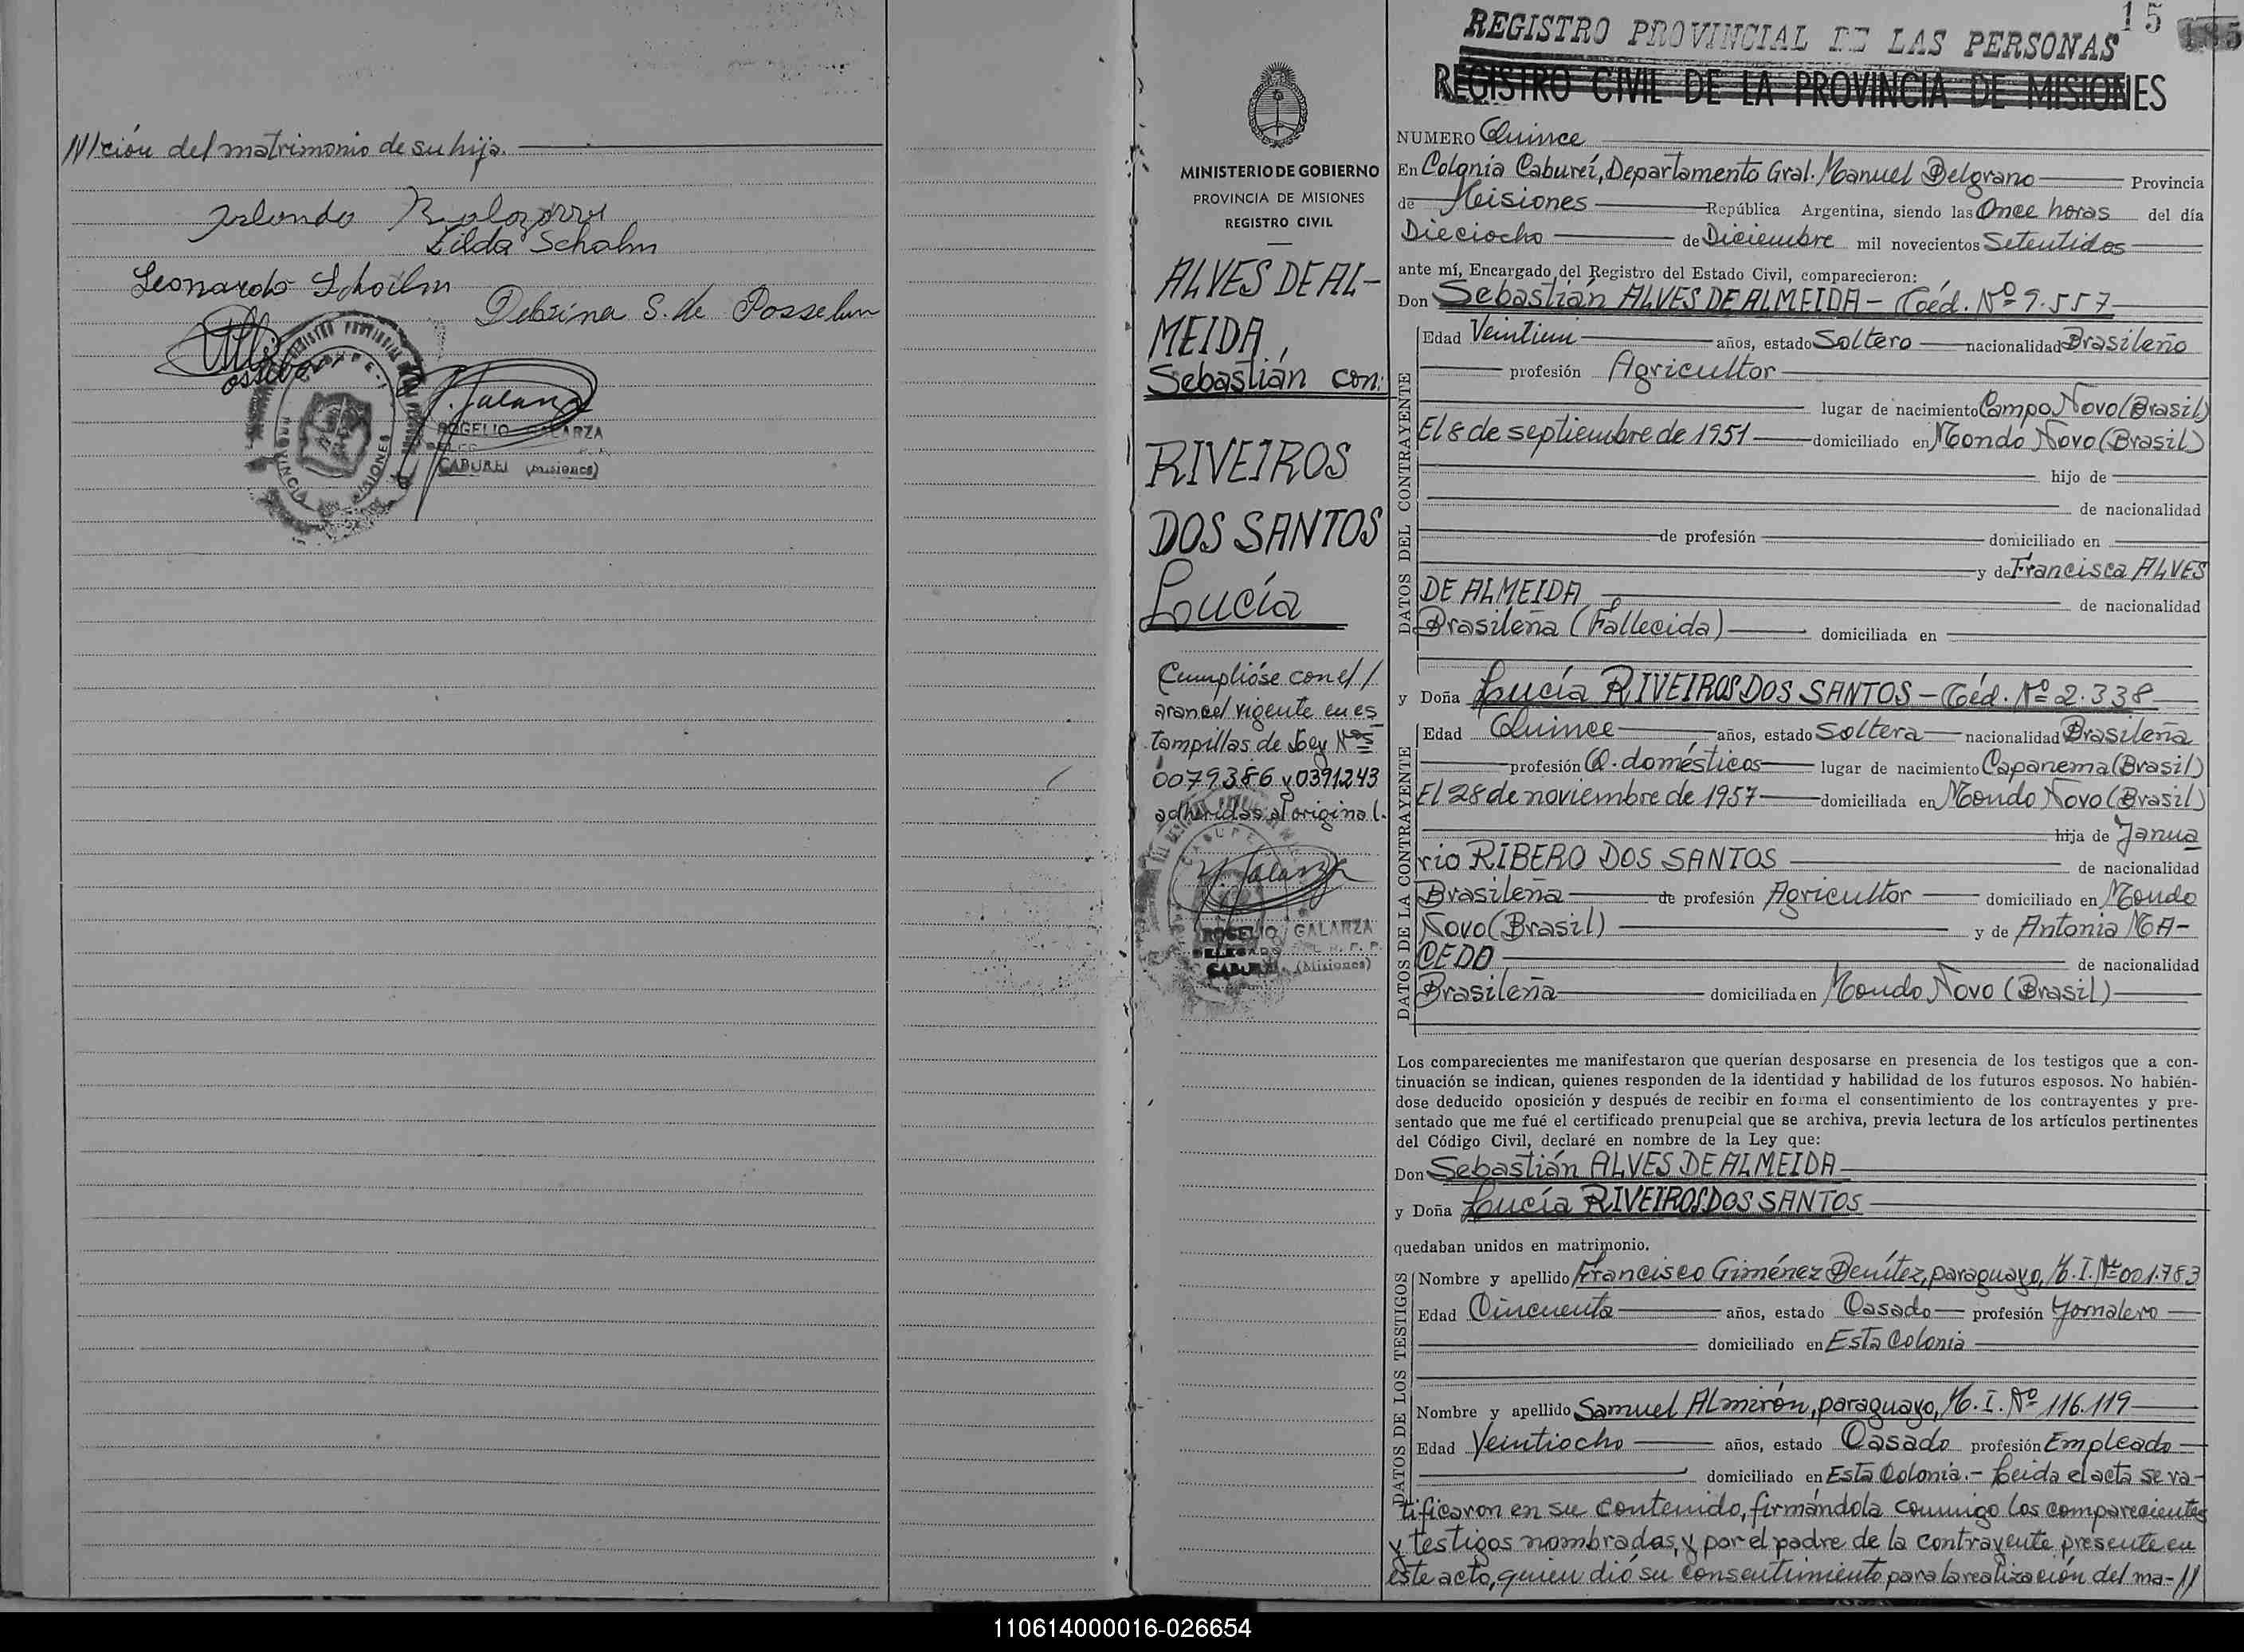 //ción del matrimonio de su hija.
Lilda Schohn
Leonardo
Debrina S. de Posselun
REGISTRO PROVINCIAL
MISIONES
PROVINCIA
ROGELIO GALARZA
CABUREI (Misiones)
15
REGISTRO PROVINCIAL DE LAS PERSONAS
REGISTRO CIVIL DE LA PROVINCIA DE MISIONES
MINISTERIO DE GOBIERNO
PROVINCIA DE MISIONES
REGISTRO CIVIL
ALVES DE AL-
MEIDA,
Sebastián con:
RIVEIROS
DOS SANTOS
Lucía
Cumplióse con el /
arancel vigente en es
tampillas de Ley Nos
0079386 y 0391243
adheridas al original.
ROGELIO GALARZA
DELEGADO DEL R. P. P.
CABUREI (Misiones)
NUMERO Quince
En Colonia Cabureí, Departamento Gral. Manuel Belgrano Provincia
de Misiones República Argentina, siendo las Once horas del día
Dieciocho de Diciembre mil novecientos Setentidos
ante mí, Encargado del Registro del Estado Civil, comparecieron:
Don Sebastián ALVES DE ALMEIDA - Céd. Nº 9.557
DATOS DEL CONTRAYENTE
Edad Veintiun años, estado Soltero nacionalidad Brasileño
profesión Agricultor
lugar de nacimiento Campo Novo (Brasil)
El 8 de septiembre de 1951 domiciliado en Mondo Novo (Brasil)
hijo de
de nacionalidad
de profesión domiciliado en
y de Francisca ALVES
DE ALMEIDA de nacionalidad
Brasileña (Fallecida) domiciliada en
y Doña Lucía RIVEIROS DOS SANTOS - Céd. Nº 2.338
DATOS DE LA CONTRAYENTE
Edad Quince años, estado Soltera nacionalidad Brasileña
profesión Q. domésticos lugar de nacimiento Capanema (Brasil)
El 28 de noviembre de 1957 domiciliada en Mondo Novo (Brasil)
hija de Janua
rio RIBERO DOS SANTOS de nacionalidad
Brasileña de profesión Agricultor domiciliado en Mondo
Novo (Brasil) y de Antonia MA-
CEDO de nacionalidad
Brasileña domiciliada en Mondo Novo (Brasil)
Los comparecientes me manifestaron que querían desposarse en presencia de los testigos que a con-
tinuación se indican, quienes responden de la identidad y habilidad de los futuros esposos. No habién-
dose deducido oposición y después de recibir en forma el consentimiento de los contrayentes y pre-
sentado que me fué el certificado prenupcial que se archiva, previa lectura de los artículos pertinentes
del Código Civil, declaré en nombre de la Ley que:
Don Sebastián ALVES DE ALMEIDA
y Doña Lucía RIVEIROS DOS SANTOS
quedaban unidos en matrimonio.
DATOS DE LOS TESTIGOS
Nombre y apellido Francisco Giménez Benítez, paraguayo, M. I. Nº 001.783
Edad Cincuenta años, estado Casado profesión Jornalero
domiciliado en Esta Colonia
Nombre y apellido Samuel Almirón, paraguayo, M. I. Nº 116.119
Edad Veintiocho años, estado Casado profesión Empleado
domiciliado en Esta Colonia.- Leida el acta se ra-
tificaron en su contenido, firmándola conmigo los comparecientes
y testigos nombrados, y por el padre de la contrayente presente en
este acto, quien dió su consentimiento para la realización del ma-//
110614000016-026654